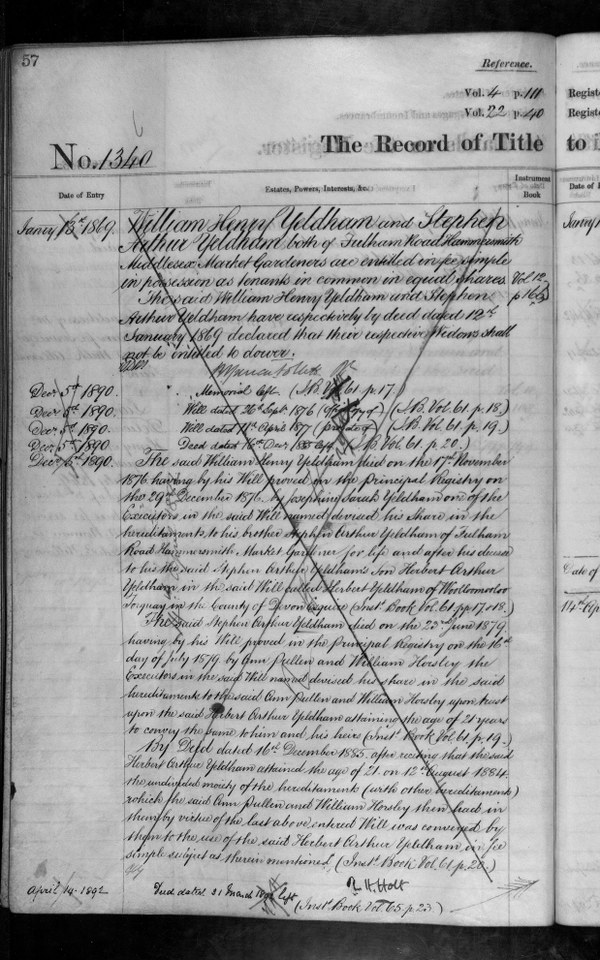 57
Reference.
Vol. 4 p. 111
Vol. 22 p. 40
No. 1340
The Record of Title
to i
Date of Entry
Estates, Powers, Interests, &c.
Instrument
Book
Regist
Regist
Date of
Jany 13th 1869
William Henry Yeldham and Stephen
Arthur Yeldham both of Fulham Road Hammersmith
Middlesex Market Gardeners are entitled in fee simple
in possession as tenants in common in equal shares. Vol 12
The said William Henry Yeldham and Stephen
Arthur Yeldham have respectively by deed dated 12th
January 1869 declared that their respective Widows shall
not be entitled to dower.
Decr 5th 1890. Memorial left (I.B. Vol. 61. p. 17.)
Decr 5th 1890. Will dated 26th Sept 1876 (I.B. Vol. 61. p. 18.)
Decr 5th 1890. Will dated 11th April 1877 (I.B. Vol. 61. p. 19.)
Decr 5th 1890 Deed dated 16th Decr 1885 left (I.B. Vol. 61. p. 20.)
Decr 5th 1890.
The said William Henry Yeldham died on the 17th November
1876 having by his Will proved in the Principal Registry on
the 29th December 1876 by Josephine Sarah Yeldham one of the
Executors in the said Will named devised his share in the
hereditaments to his brother Stephen Arthur Yeldham of Fulham
Road Hammersmith Market Gardener for life and after his decease
to his the said Stephen Arthur Yeldham's Son Herbert Arthur
Yeldham in the said Will called Herbert Yeldham of Woolloomooloo
Torquay in the County of Devon Esquire (Inst. Book Vol. 61 pp. 17 & 18.)
The said Stephen Arthur Yeldham died on the 22nd June 1879
having by his Will proved in the Principal Registry on the 16th
day of July 1879 by Ann Pullen and William Horsley the
Executors in the said Will named devised his share in the said
hereditaments to the said Ann Pullen and William Horsley upon trust
upon the said Herbert Arthur Yeldham attaining the age of 21 years
to convey the same to him and his heirs (Inst. Book Vol. 61. p. 19.)
By Deed dated 16th December 1885 after reciting that the said
Herbert Arthur Yeldham attained the age of 21 on 12th August 1884
the undivided moiety of the hereditaments (with other hereditaments)
which the said Ann Pullen and William Horsley then had in
them by virtue of the last above entered Will was conveyed by
them to the use of the said Herbert Arthur Yeldham in fee
simple subject as therein mentioned, (Inst. Book Vol. 61. p. 20.)
R. H. Holt
April 14. 1892 Deed dated 21 March left
(Inst. Book Vol. 65. p. 23.)